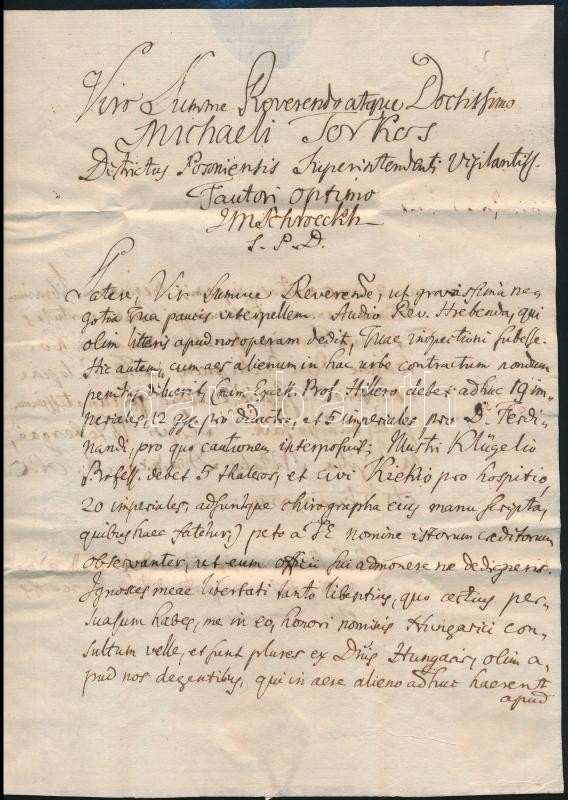 Viro Summe Reverendo atque Doctissimo
Michaeli Torkos
Districtus Posoniensis Superintendenti Vigilantiss.
Fautori Optimo
JMSchroeckh
S. P. D.
Patere, Vir Summe Reverende, ut gravissima ne-
gotia Tua paucis interpellem. Audio Rev. Hrebenda, qui
olim literis apud nos operam dedit, Tuae inspectioni subesse.
Hic autem, cum aes alienum in hac urbe contractum nondum
penitus diluerit, (nam Excell. Prof. Hilero debet adhuc 19 im-
periales, 12 pro didactro, et 5 imperiales pro D. Ferdi-
nandi, pro quo cautionem interposuit; Nostri Klügelio
Profess. debet 5 thaleros, et civi Kiehlo pro hospitio
20 imperiales, adsuntque chirographa ejus manu scripta,
quibus haec fatetur,) peto a TE nomine istorum creditorum
observanter, ut eum officii sui admonere ne dedigneris.
Ignosces meae libertati tanto libentius, quo certius per-
suasum habes, me in eo, honori nominis Hungarici con-
sultum velle, et sunt plures ex Dnis Hungaris, olim a-
pud nos degentibus, qui in aere alieno adhuc haerent
apud
darabanth